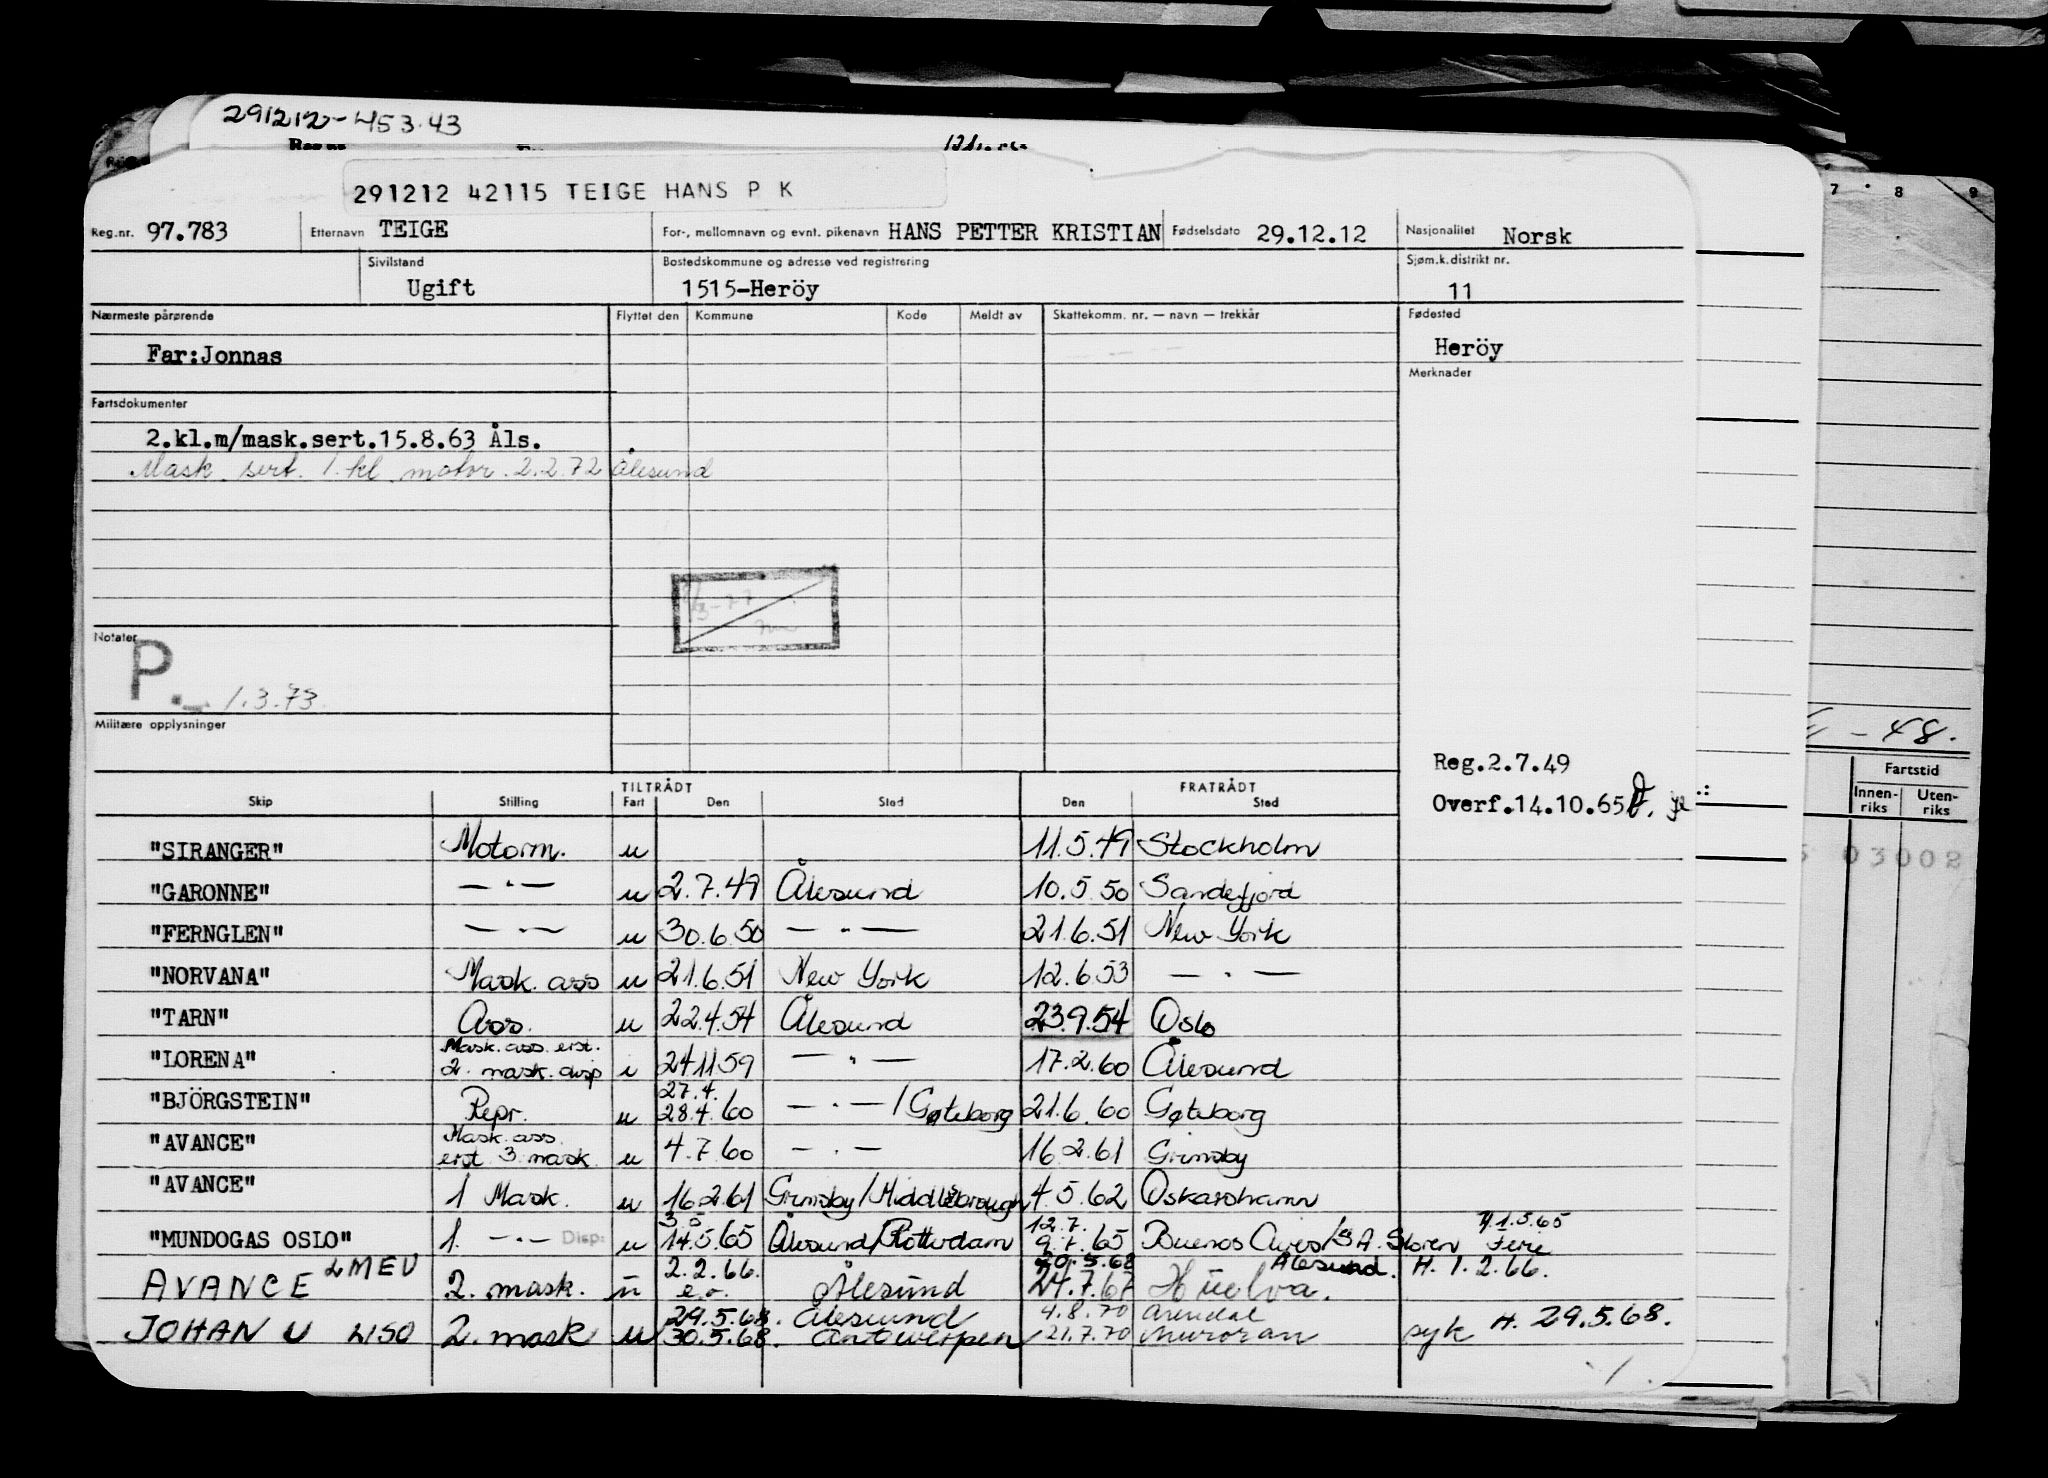 291212-453.43
291212 42115 TEIGE HANS P K
Reg.nr. 97.783 Etternavn TEIGE For-, mellomnavn og evnt. pikenavn HANS PETTER KRISTIAN Fødselsdato 29.12.12 Nasjonalitet Norsk
Sivilstand Bostedskommune og adresse ved registrering Sjøm.k.distrikt nr.
Ugift 1515-Heröy 11
Nærmeste pårørende Flyttet den Kommune Kode Meldt av Skattekomm. nr. — navn — trekkår Fødested
Far:Jonnas Heröy
Merknader
Fartsdokumenter
2.kl.m/mask.sert.15.8.63 Åls.
Mask. sert. 1. kl. motor. 2.2.72 Ålesund
Notater
P. 1.3.73
Militære opplysninger
Reg.2.7.49
Overf.14.10.65
TILTRÅDT FRATRÅDT
Skip Stilling Fart Den Sted Den Sted
"SIRANGER" Motorm. u 11.5.49 Stockholm
"GARONNE" — " — u 2.7.49 Ålesund 10.5.50 Sandefjord
"FERNGLEN" — " — u 30.6.50 — " — 21.6.51 New York
"NORVANA" Mask. ass u 21.6.51 New York 12.6.53 — " —
"TARN" Ass. u 22.4.54 Ålesund 23.9.54 Oslo
"LORENA" Mask. ass. erst. 2. mask. disp i 24.11.59 — " — 17.2.60 Ålesund
"BJÖRGSTEIN" Repr. u 27.4. 28.4.60 — " — / Gøteborg 21.6.60 Gøteborg
"AVANCE" Mask. ass. erst. 3. mask. u 4.7.60 — " — 16.2.61 Grimsby
"AVANCE" 1 Mask. u 16.2.61 Grimsby/Middlesbrough 4.5.62 Oskarshamn
"MUNDOGAS OSLO" 1. — " — Disp: u 3.5 14.5.65 Ålesund/Rotterdam 12.7. 9.7.65 Buenos Aires/ Ferie
AVANCE LMEU 2. mask. u 2.2.66. e.o. Ålesund 20.5.68 24.7.67 Ålesund. Huelva. H. 1.2.66.
JOHAN U LISO 2. mask u 29.5.68. Ålesund 30.5.68. Antwerpen 4.8.70 Arendal 21.7.70 Muroran syk H. 29.5.68.
7 8 9
-48.
Fartstid
Innen-riks Uten-riks
03002